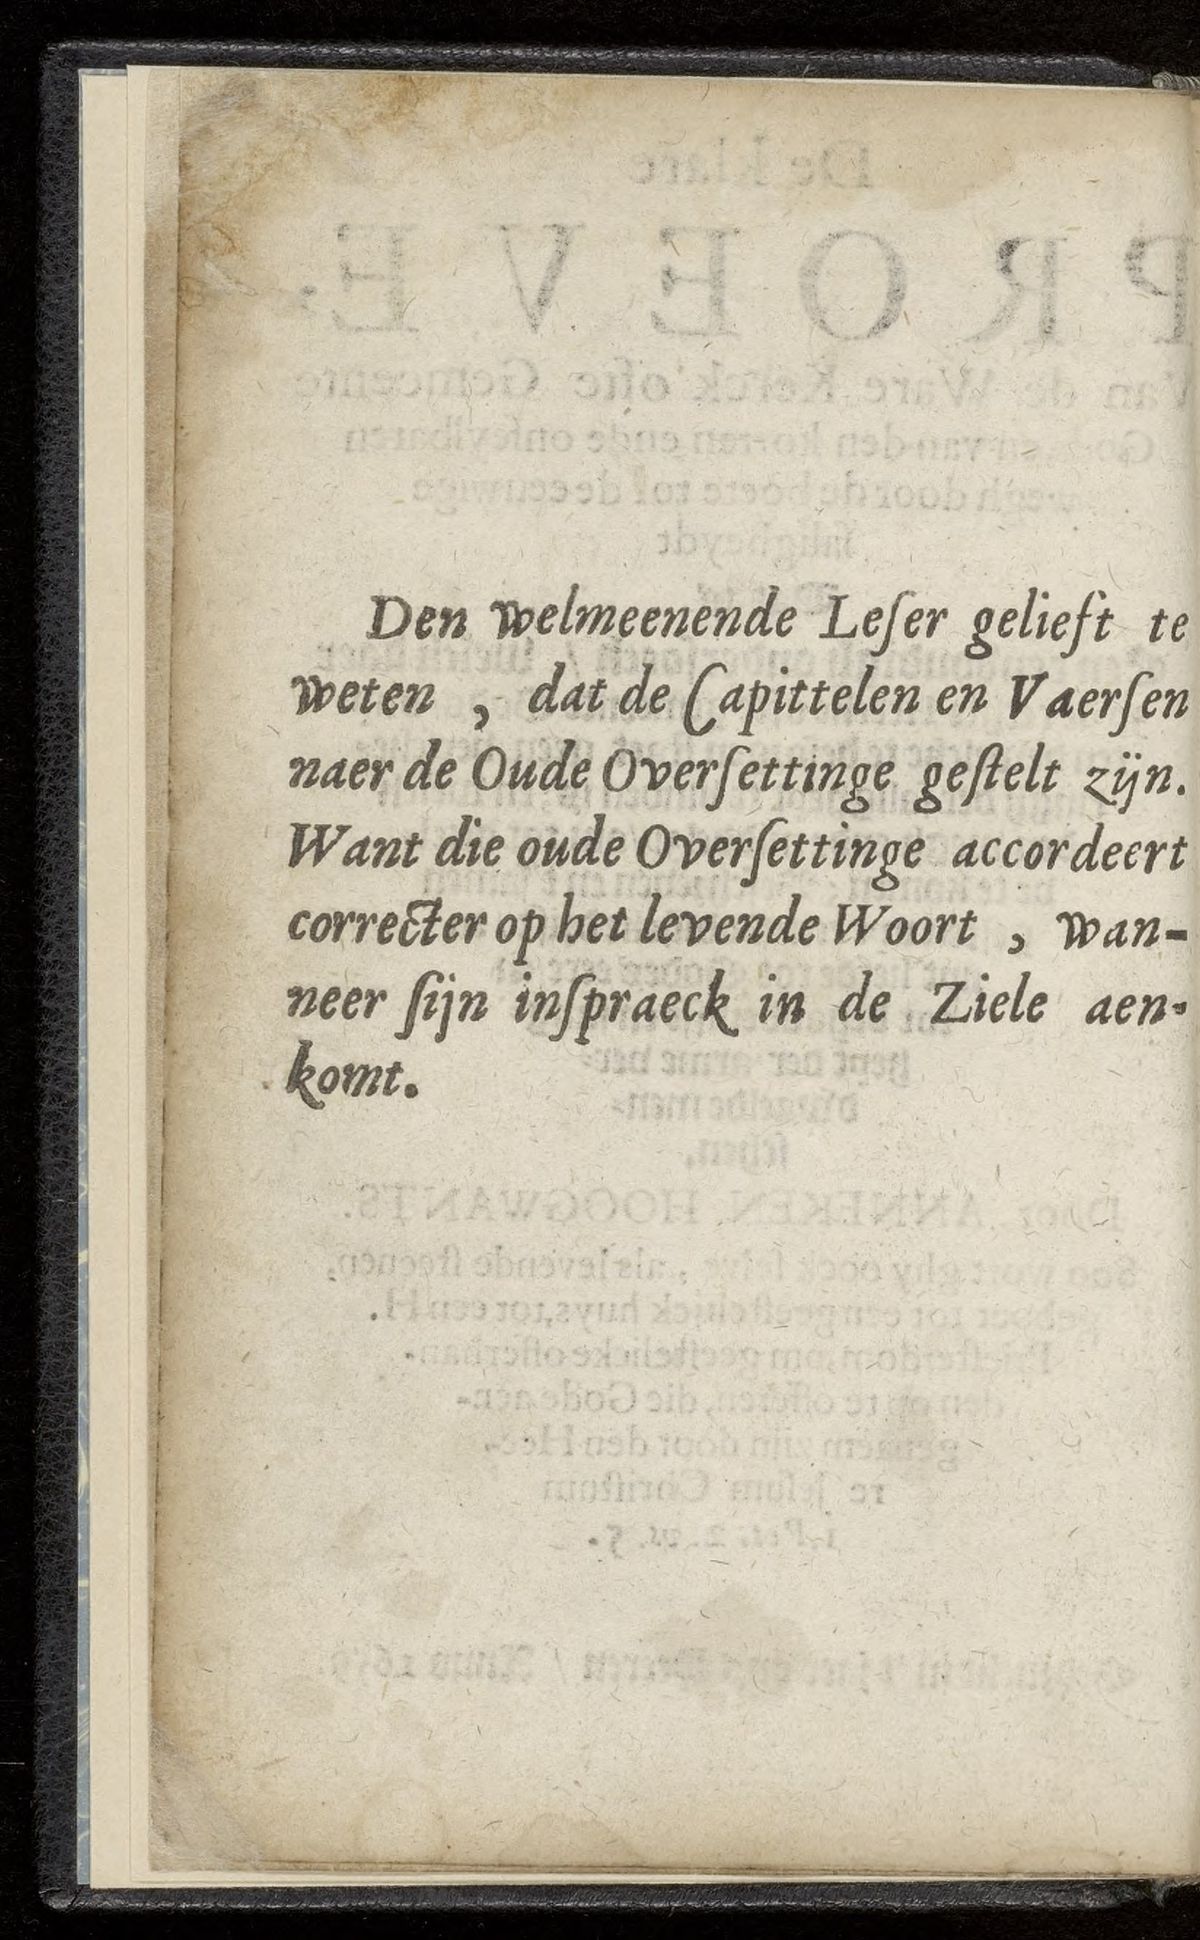 Den welmeenende Leſer gelieft te
weten , dat de Capittelen en Vaerſen
naer de Oude Overſettinge geſtelt zijn.
Want die oude Overſettinge accordeert
correcter op het levende Woort , wan-
neer ſijn inſpraeck in de Ziele aen-
komt.